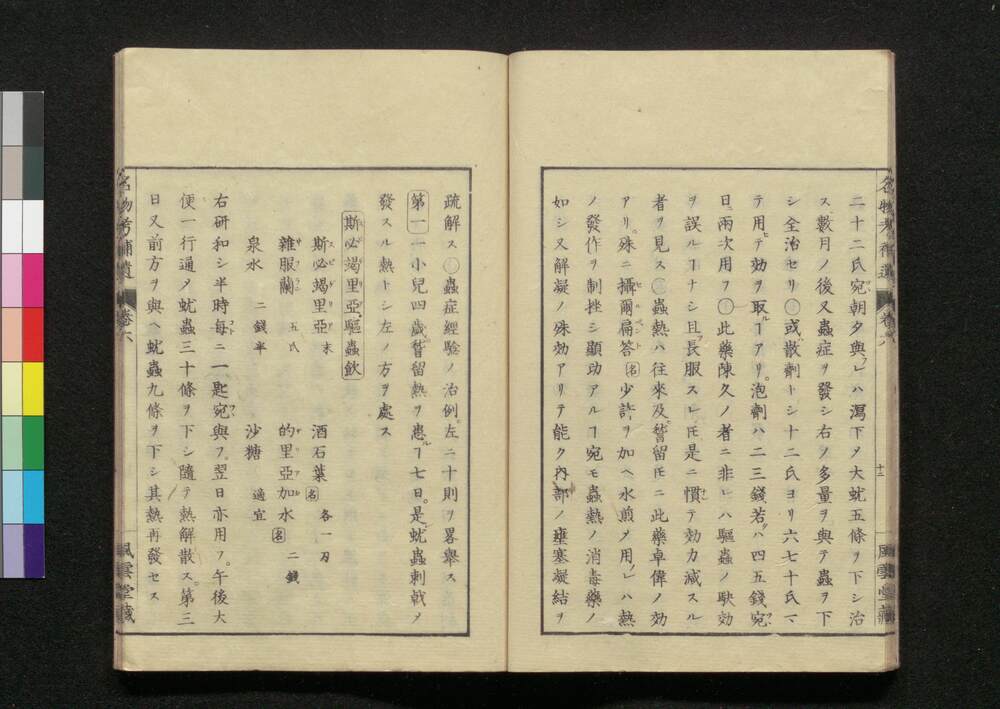 二十二氏宛朝夕與レハ瀉下メ大蚘五條ヲ下シ治
ス數月ノ後又蟲症ヲ發シ右ノ多量ヲ與テ蟲ヲ下
シ全治セリ○或散劑トシ十二氏ヨリ六七十氏マ
テ用テ効ヲ取ルヿアリ泡劑ハ二三錢若クハ四五錢宛
日ニ兩次用フ○此藥陳久ノ者ニ非レハ驅蟲ノ駃効
ヲ誤ルヿナシ且長服スレ𪜈是ニ慣テ効力減スル
者ヲ見ス○蟲熱ハ往來及稽留𪜈ニ此藥卓偉ノ効
アリ殊ニ攝爾扁答名少許ヲ加ヘ水煎メ用レハ熱
ノ發作ヲ制挫シ顯助アルヿ宛モ蟲熱ノ消毒藥ノ
如シ又解凝ノ殊効アリテ能ク內部ノ壅塞凝結ヲ
十二
名物考補遺
風雲堂藏
疏解ス○蟲症經驗ノ治例左ニ十則ヲ畧舉ス
第一 一小兒四歲稽留熱ヲ患ルヿ七日是蚘蟲刺戟メ
發スル熱トシ左ノ方ヲ處ス
斯必竭里亞驅蟲飲
斯必竭里亞末 酒石葉名 各一刄
雜服蘭 五氏 的里亞加水名 二錢
泉水 二錢半 沙糖 適宜
右研和シ半時每ニ一匙宛與フ翌日亦用フ午後大
便一行通メ蚘蟲三十條ヲ下シ隨テ熱解散ス第三
日又前方ヲ與ヘ蚘蟲九條ヲ下シ其熱再發セス
名物考補遺 卷六
風雲堂藏